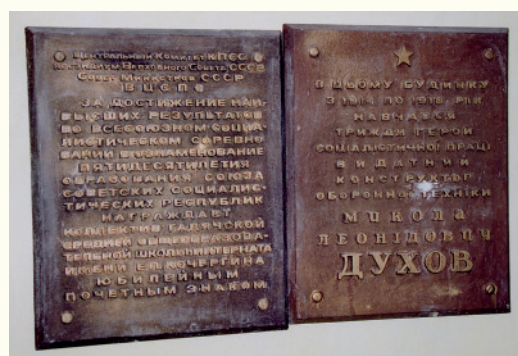 Центральный Комитет КПСС
Президиум Верховного Совета СССР
Совет Министров СССР
ВЦСПС
ЗА ДОСТИЖЕНИЕ НАИ-
ВЫСШИХ РЕЗУЛЬТАТОВ
ВО ВСЕСОЮЗНОМ СОЦИА-
ЛИСТИЧЕСКОМ СОРЕВНО
ВАНИИ В ОЗНАМЕНОВАНИЕ
ПЯТИДЕСЯТИЛЕТИЯ
ОБРАЗОВАНИЯ СОЮЗА
СОВЕТСКИХ СОЦИАЛИС-
ТИЧЕСКИХ РЕСПУБЛИК
НАГРАЖДАЕТ
КОЛЛЕКТИВ ГАДЯЧСКОЙ
СРЕДНЕЙ ОБЩЕОБРАЗОВА-
ТЕЛЬНОЙ ШКОЛЫ-ИНТЕРНАТА
ИМЕНИ Е.П.КОЧЕРГИНА
ЮБИЛЕЙНЫМ
ПОЧЕТНЫМ ЗНАКОМ
В ЦЬОМУ БУДИНКУ
З 1914 ПО 1918 РІК
НАВЧАВСЯ
ТРИЖДИ ГЕРОЙ
СОЦІАЛІСТИЧНОЇ ПРАЦІ
ВИДАТНИЙ
КОНСТРУКТОР
ОБОРОННОЇ ТЕХНІКИ
МИКОЛА
ЛЕОНІДОВИЧ
ДУХОВ